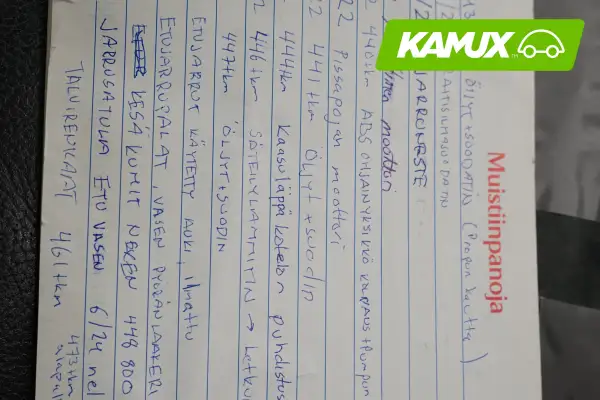 KAMUX
Muistiinpanoja
ÖLJYT+SUODATIN (Propun kautta)
RAITISILMASUODATIN
JARRUNESTE
moottori
440tkm ABS OHJAINYKSIKKÖ KORJAUS+PUMPUN
22 Pissapojan moottori
22 441tkm Öljyt+suodin
444tkm Kaasuläppä kotelon puhdistus
446tkm SÄTEILYLÄMMITIN →
447tkm ÖLJYT+SUODIN
ETUJARRUT KÄYTETTY AUKI, ilmattu
ETUJARRUPALAT, VASEN PYÖRÄNLAAKERI
KESÄKUMIT NEXEN 448 800
JARRUSATULA ETU VASEN 6/24 nel
TALVIRENKAAT 461tkm
473tkm